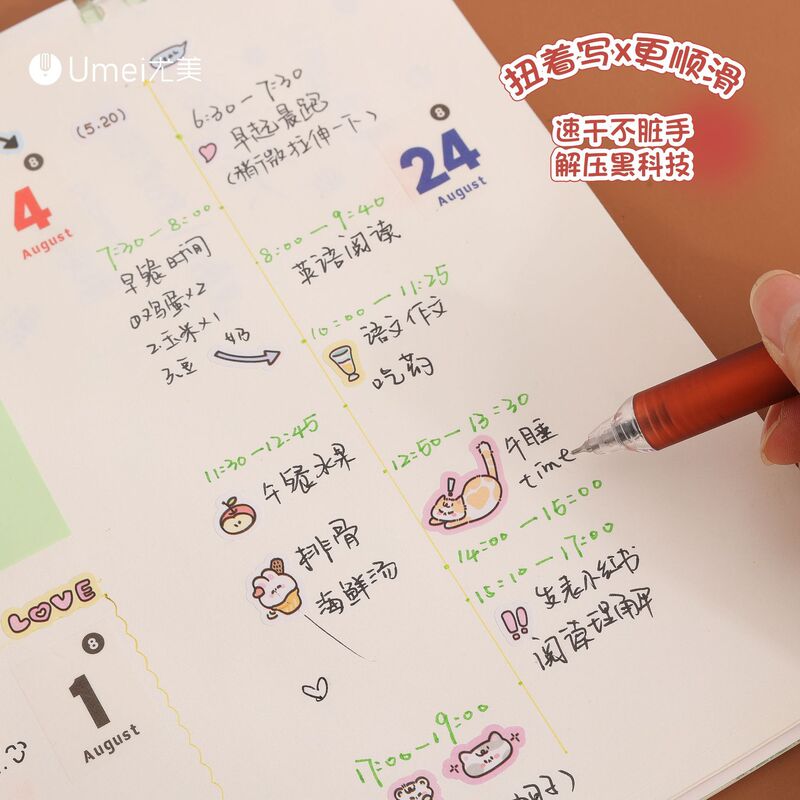 Umei尤美
扭着写x更顺滑
速干不脏手
解压黑科技
(5.20)
6:30-7:30
早起晨跑
(稍微拉伸一下)
8
4
August
8
24
August
7:30-8:00
早餐时间
1.鸡蛋×2
2.玉米×1
3.豆奶
8:00-9:40
英语阅读
10:00-11:25
语文作文
吃药
11:30-12:45
午餐水果
排骨
海鲜汤
12:50-13:30
午睡
time
14:00-15:00
15:10-17:00
发表小红书
阅读理解
!!
LOVE
8
1
August
17:00-19:00